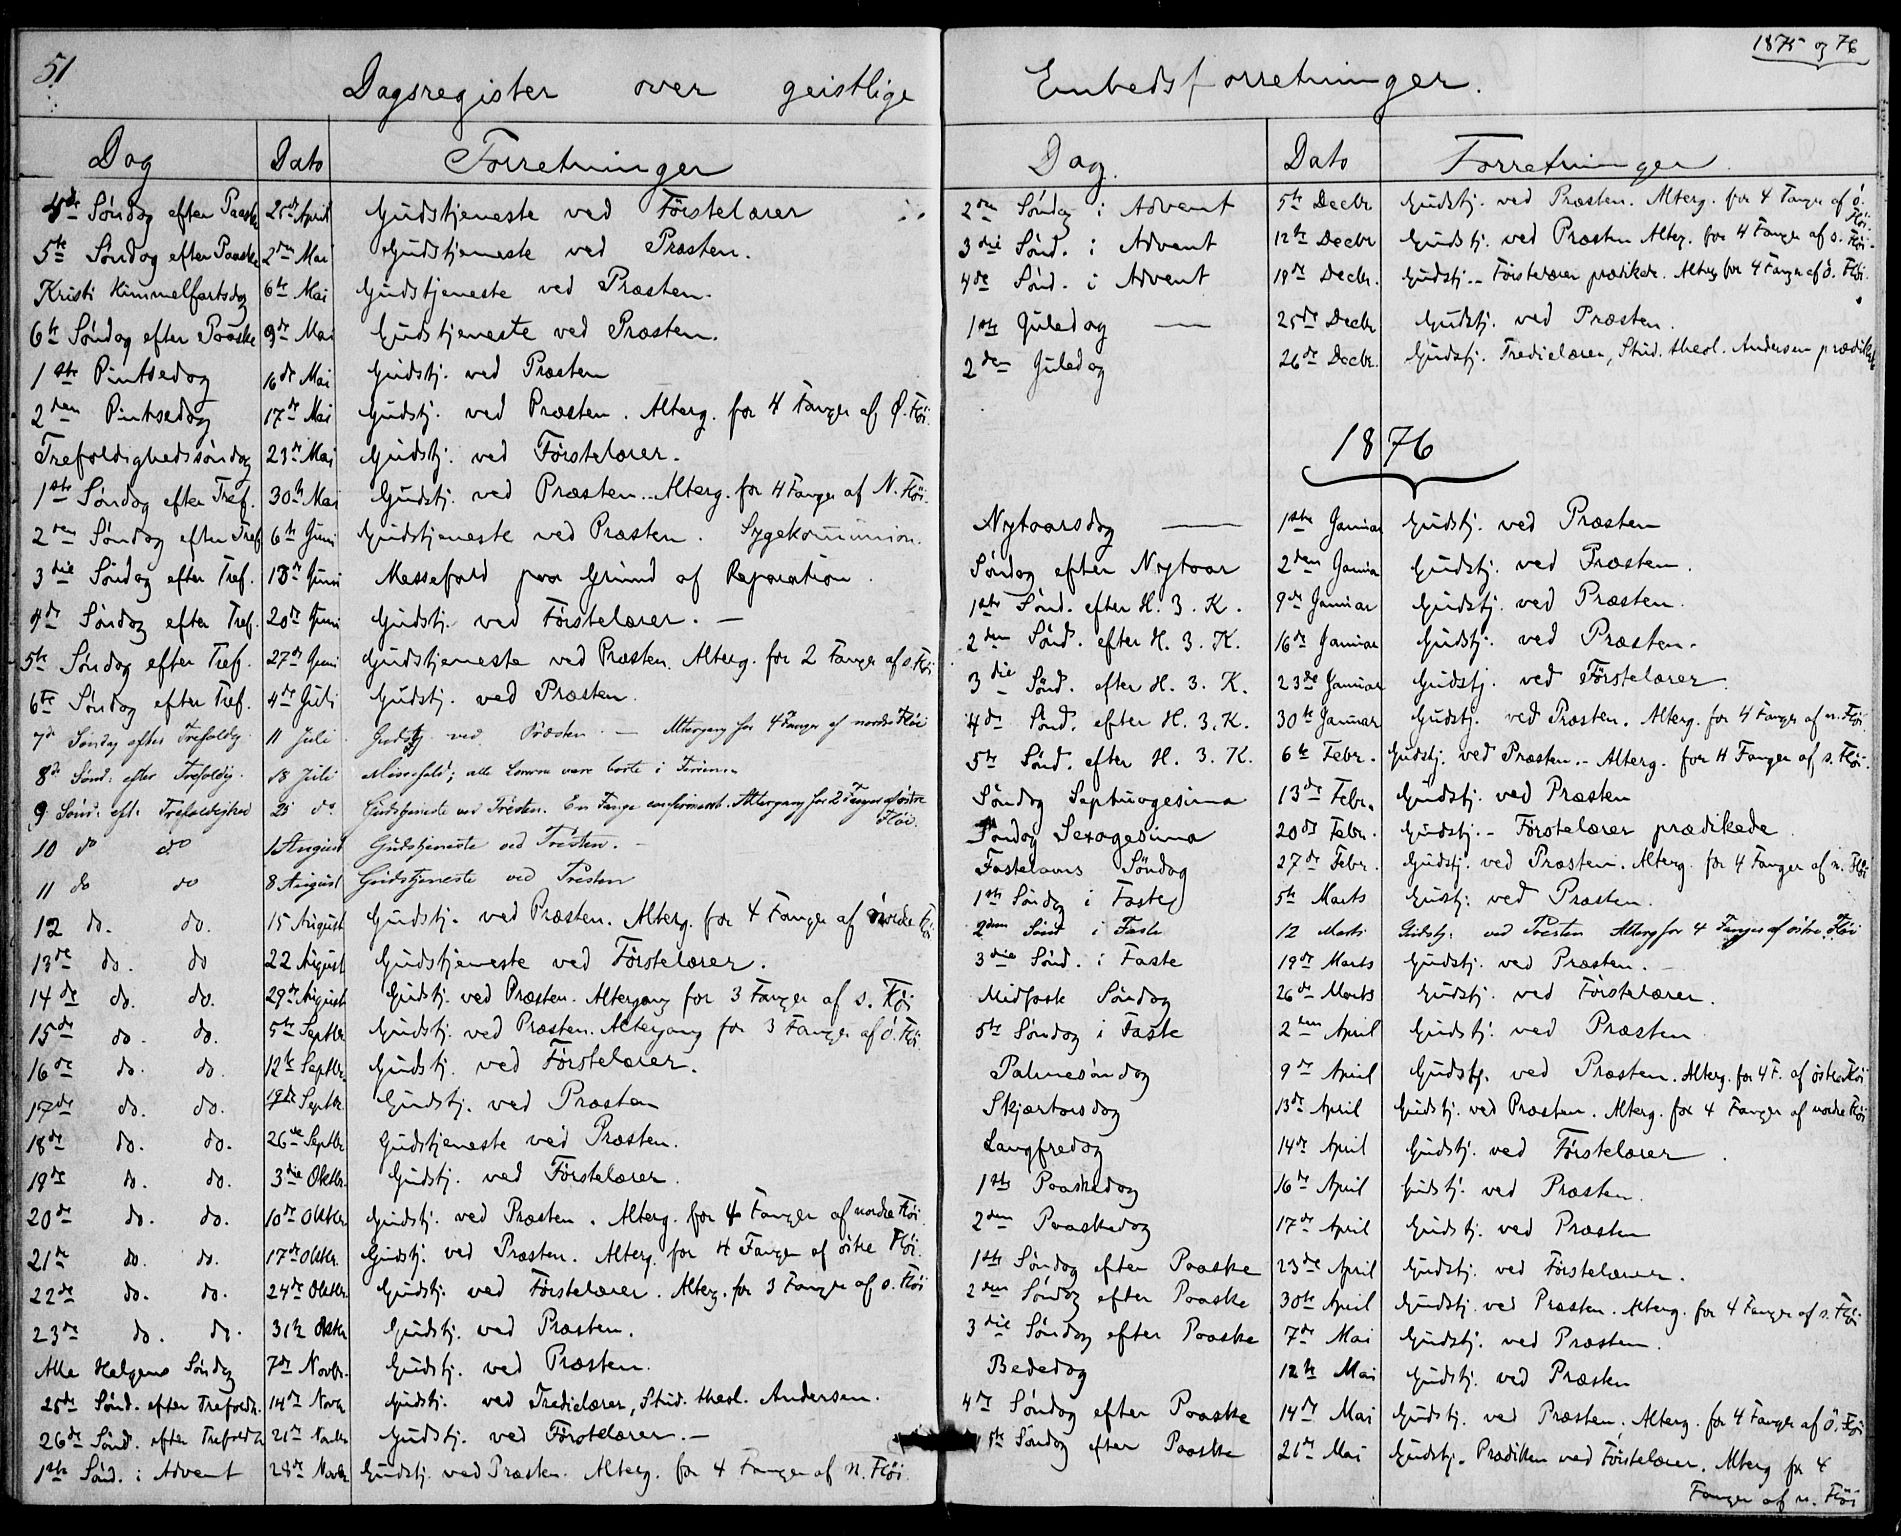 51
Dagsregister over geistlige
Dag Dato Forretninger
4de Søndag efter Paaske 25de April Gudstjeneste ved Førstelærer
5te Søndag efter Paaske 2den Mai Gudstjeneste ved Præsten.
Kristi Himmelfartsdag 6te Mai Gudstjeneste ved Præsten.
6te Søndag efter Paaske 9de Mai Gudstjeneste ved Præsten.
1ste Pintsedag 16de Mai Gudstj. ved Præsten
2den Pintsedag 17de Mai Gudstj. ved Præsten. Alterg. for 4 Fanger af Ø. Fløi.
Trefoldighedssøndag 23de Mai Gudstj. ved Førstelærer.
1ste Søndag efter Tref. 30te Mai Gudstj. ved Præsten. Alterg. for 4 Fanger af N. Fløi.
2den Søndag efter Tref 6te Juni Gudstjeneste ved Præsten. Sygekommunion.
3die Søndag efter Tref. 13de Juni Messefald paa Grund af Reparation.
4de Søndag efter Tref. 20de Juni Gudstj. ved Førstelærer. —
5te Søndag efter Tref. 27de Juni Gudstjeneste ved Præsten. Alterg. for 2 Fanger af s. Fløi
6te Søndag efter Tref. 4de Juli Gudstj. ved Præsten.
7de Søndag efter Trefoldig. 11 Juli Gudstj. ved Præsten. — Altergang for 4 Fanger af nordre Fløi
8de Sønd. efter Trefoldig. 18 Juli Messefald; alle Lærerne vare borte i Ferien.
9. Sønd. eft. Trefoldighed 25 do. Gudstjeneste ved Præsten. En Fange confirmeret. Altergang for 2 Fanger af østre
Fløi.
10 do do 1 August Gudstjeneste ved Præsten. —
11 do do 8 August Gudstjeneste ved Præsten
12 do. do. 15 August Gudstj. ved Præsten. Alterg. for 4 Fanger af nordre Fløi
13de do. do 22 August Gudstjeneste ved Førstelærer.
14de do. do. 29de August Gudstj. ved Præsten. Altergang for 3 Fanger af s. Fløi
15de do. do. 5te Septbr Gudstj. ved Præsten. Altergang for 3 Fanger af ö. Fløi.
16de do. do. 12te Septbr. Gudstj. ved Førstelærer.
17de do. do. 19de Septbr. Gudstj. ved Præsten
18de do. do. 26de Septbr Gudstjeneste ved Præsten.
19de do. do. 3die Oktbr. Gudstj. ved Førstelærer.
20de do. do. 10de Oktbr Gudstj. ved Præsten. Alterg. for 4 Fanger af nordre Fløi.
21de do. do. 17de Oktbr. Gudstj. ved Præsten. Alterg. for 4 Fanger af östre Fløi.
22de do. do. 24de Oktbr Gudstj. ved Førstelærer. Alterg. for 3 Fanger af s. Fløi
23de do. do. 31te Oktbr Gudstj. ved Præsten.
Alle Helgens Søndag 7de Novbr. Gudstj. ved Præsten.
25de Sønd. efter Trefoldh. 14de Novbr Gudstj. ved Tredielærer, Stud. theol. Andersen.
26de Sønd. efter Trefoldh 21de Novbr Gudstj. ved Førstelærer. —
1ste Sønd. i Advent 28de Novbr Gudstj. ved Præsten. Alterg. for 4 Fanger af n. Fløi.
1875 og 76
Embedsforretninger.
Dag. Dato Forretninger
2den Søndag i Advent 5te Decbr Gudstj. ved Præsten. Alterg. for 4 Fanger af ö.
Fløi.
3die Sønd. i Advent 12te Decbr Gudstj. ved Præsten Alterg. for 4 Fanger af s. Fløi.
4de Sønd. i Advent 19de Decbr. Gudstj. – Førstelærer prædikede. Alterg. for 4 Fanger af ö. Fløi.
1ste Juledag — 25de Decbr Gudstj. ved Præsten.
2den Juledag 26de Decbr. Gudstj. Tredielærer, Stud. theol. Andersen prædikede
1876
Nytaarsdag — 1ste Januar Gudstj. ved Præsten
Søndag efter Nytaar 2den Januar Gudstj. ved Præsten.
1ste Sønd. efter H. 3. K. 9de Januar Gudstj. ved Præsten.
2den Sønd. efter H. 3. K. 16de Januar Gudstj. ved Præsten.
3die Sønd. efter H. 3. K. 23de Januar Gudstj. ved Førstelærer
4de Sønd. efter H. 3. K. 30te Januar Gudstj. ved Præsten. Alterg. for 4 Fanger af n. Fløi.
5te Sønd. efter H. 3. K. 6te Febr. Gudstj. ved Præsten. – Alterg. for 4 Fanger af s. Fløi.
Søndag Septuagesima 13de Febr. Gudstj. ved Præsten
Søndag Sexagesima 20de Febr. Gudstj. – Førstelærer prædikede
Fastelavns Søndag 27de Febr. Gudstj. ved Præsten. Alterg. for 4 Fanger af n. Fløi
1ste Søndag i Faste 5te Marts Gudstj. ved Præsten.
2den Sønd i Faste 12 Marts Gudstj. ved Præsten Alterg for 4 Fanger af östre Fløi
3die Sønd. i Faste 19de Marts Gudstj. ved Præsten. —
Midfaste Søndag 26de Marts Gudstj. ved Førstelærer.
5te Søndag i Faste 2den April Gudstj. ved Præsten
Palmesøndag 9de April Gudstj. ved Præsten. Alterg. for 4 F. af östre Fløi
Skjærtorsdag 13de April Gudstj. ved Præsten. Alterg. for 4 Fanger af nordre Fløi
Langfredag 14de April Gudstj. ved Førstelærer.
1ste Paaskedag 16de April Gudstj. ved Præsten.
2den Paaskedag 17de April Gudstj. ved Præsten
1ste Søndag efter Paaske 23de April Gudstj. ved Førstelærer.
2den Søndag efter Paaske 30te April Gudstj. ved Præsten. Alterg. for 4 Fanger af s. Fløi.
3die Søndag efter Paaske 7de Mai Gudstj. ved Præsten.
Bededag 12te Mai Gudstj. ved Præsten
4de Søndag efter Paaske 14de Mai Gudstj. ved Præsten. Alterg. for 4 Fanger af Ö. Fløi
5te Søndag efter Paaske 21de Mai Gudstj. Prædiken ved Førstelærer. Alterg for 4
Fanger af n. Fløi